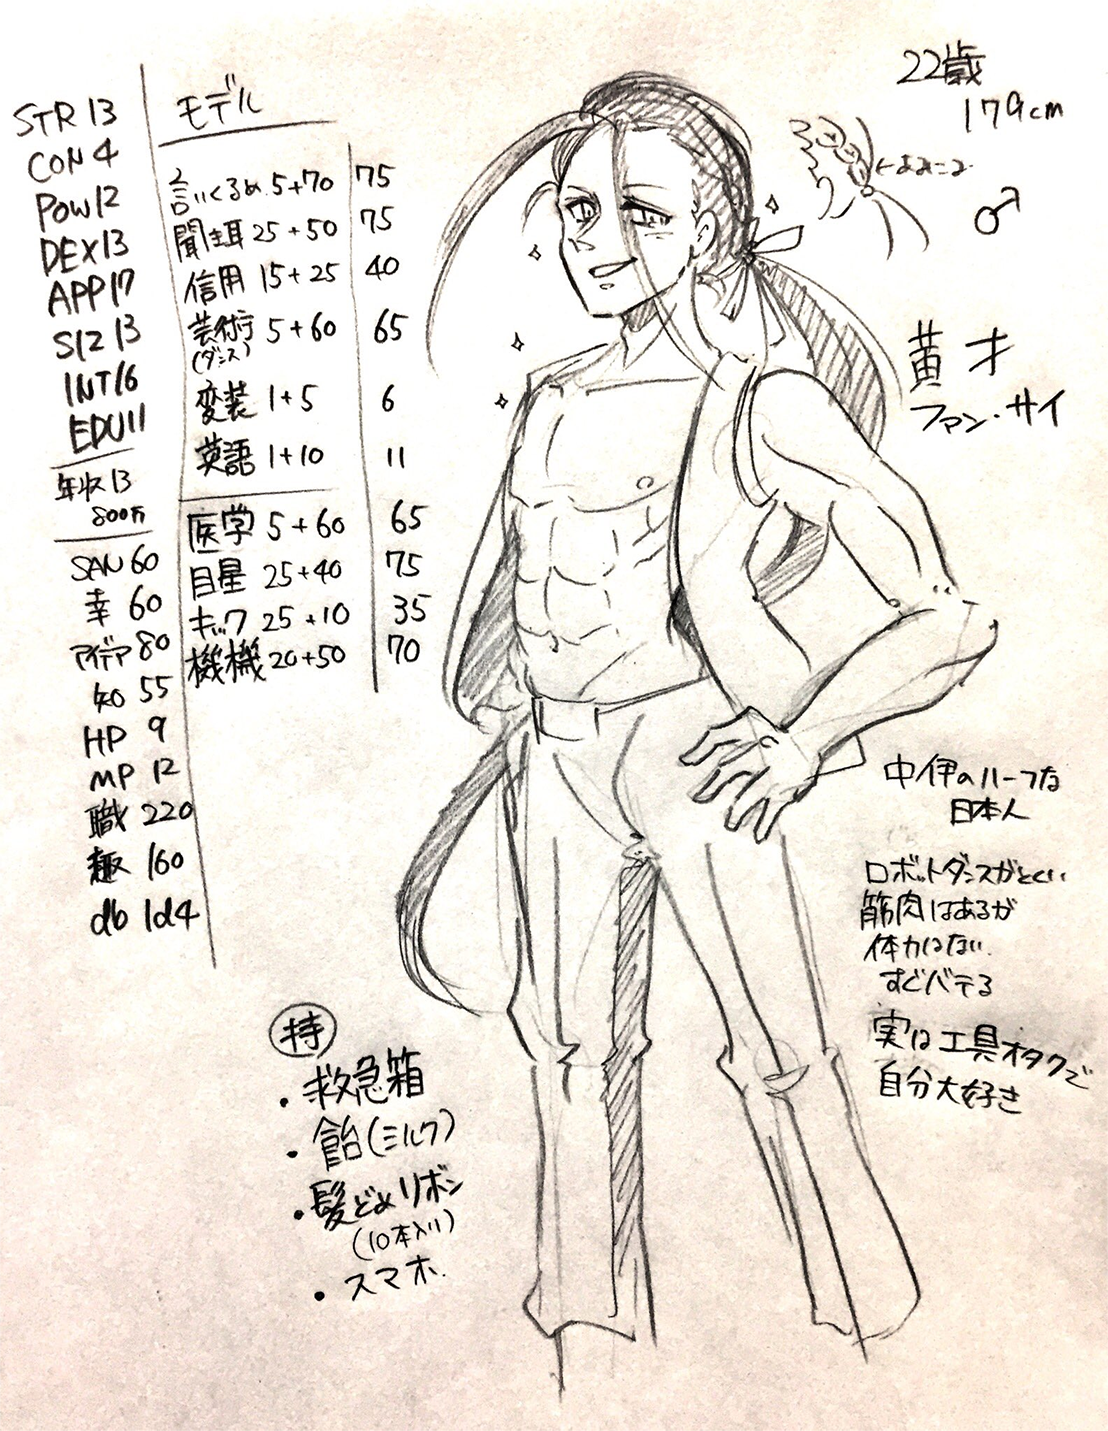 STR 13
CON 4
POW 12
DEX 13
APP 17
SIZ 13
INT 16
EDU 11
年収 13
800万
SAN 60
幸 60
アイデア 80
知 55
HP 9
MP 12
職 220
趣 160
db 1d4
モデル
言いくるめ 5+70 75
聞き耳 25+50 75
信用 15+25 40
芸術 5+60 65
(ダンス)
変装 1+5 6
英語 1+10 11
医学 5+60 65
目星 25+40 75
キック 25+10 35
機機 20+50 70
22歳
179cm
←あみこみ
♂
黄 才
ファン・サイ
中伊のハーフな
日本人
ロボットダンスがとくい
筋肉はあるが
体力はない
すぐバテる
実は工具オタクで
自分大好き
持
・救急箱
・飴(ミルク)
・髪どめリボン
(10本入り)
・スマホ.